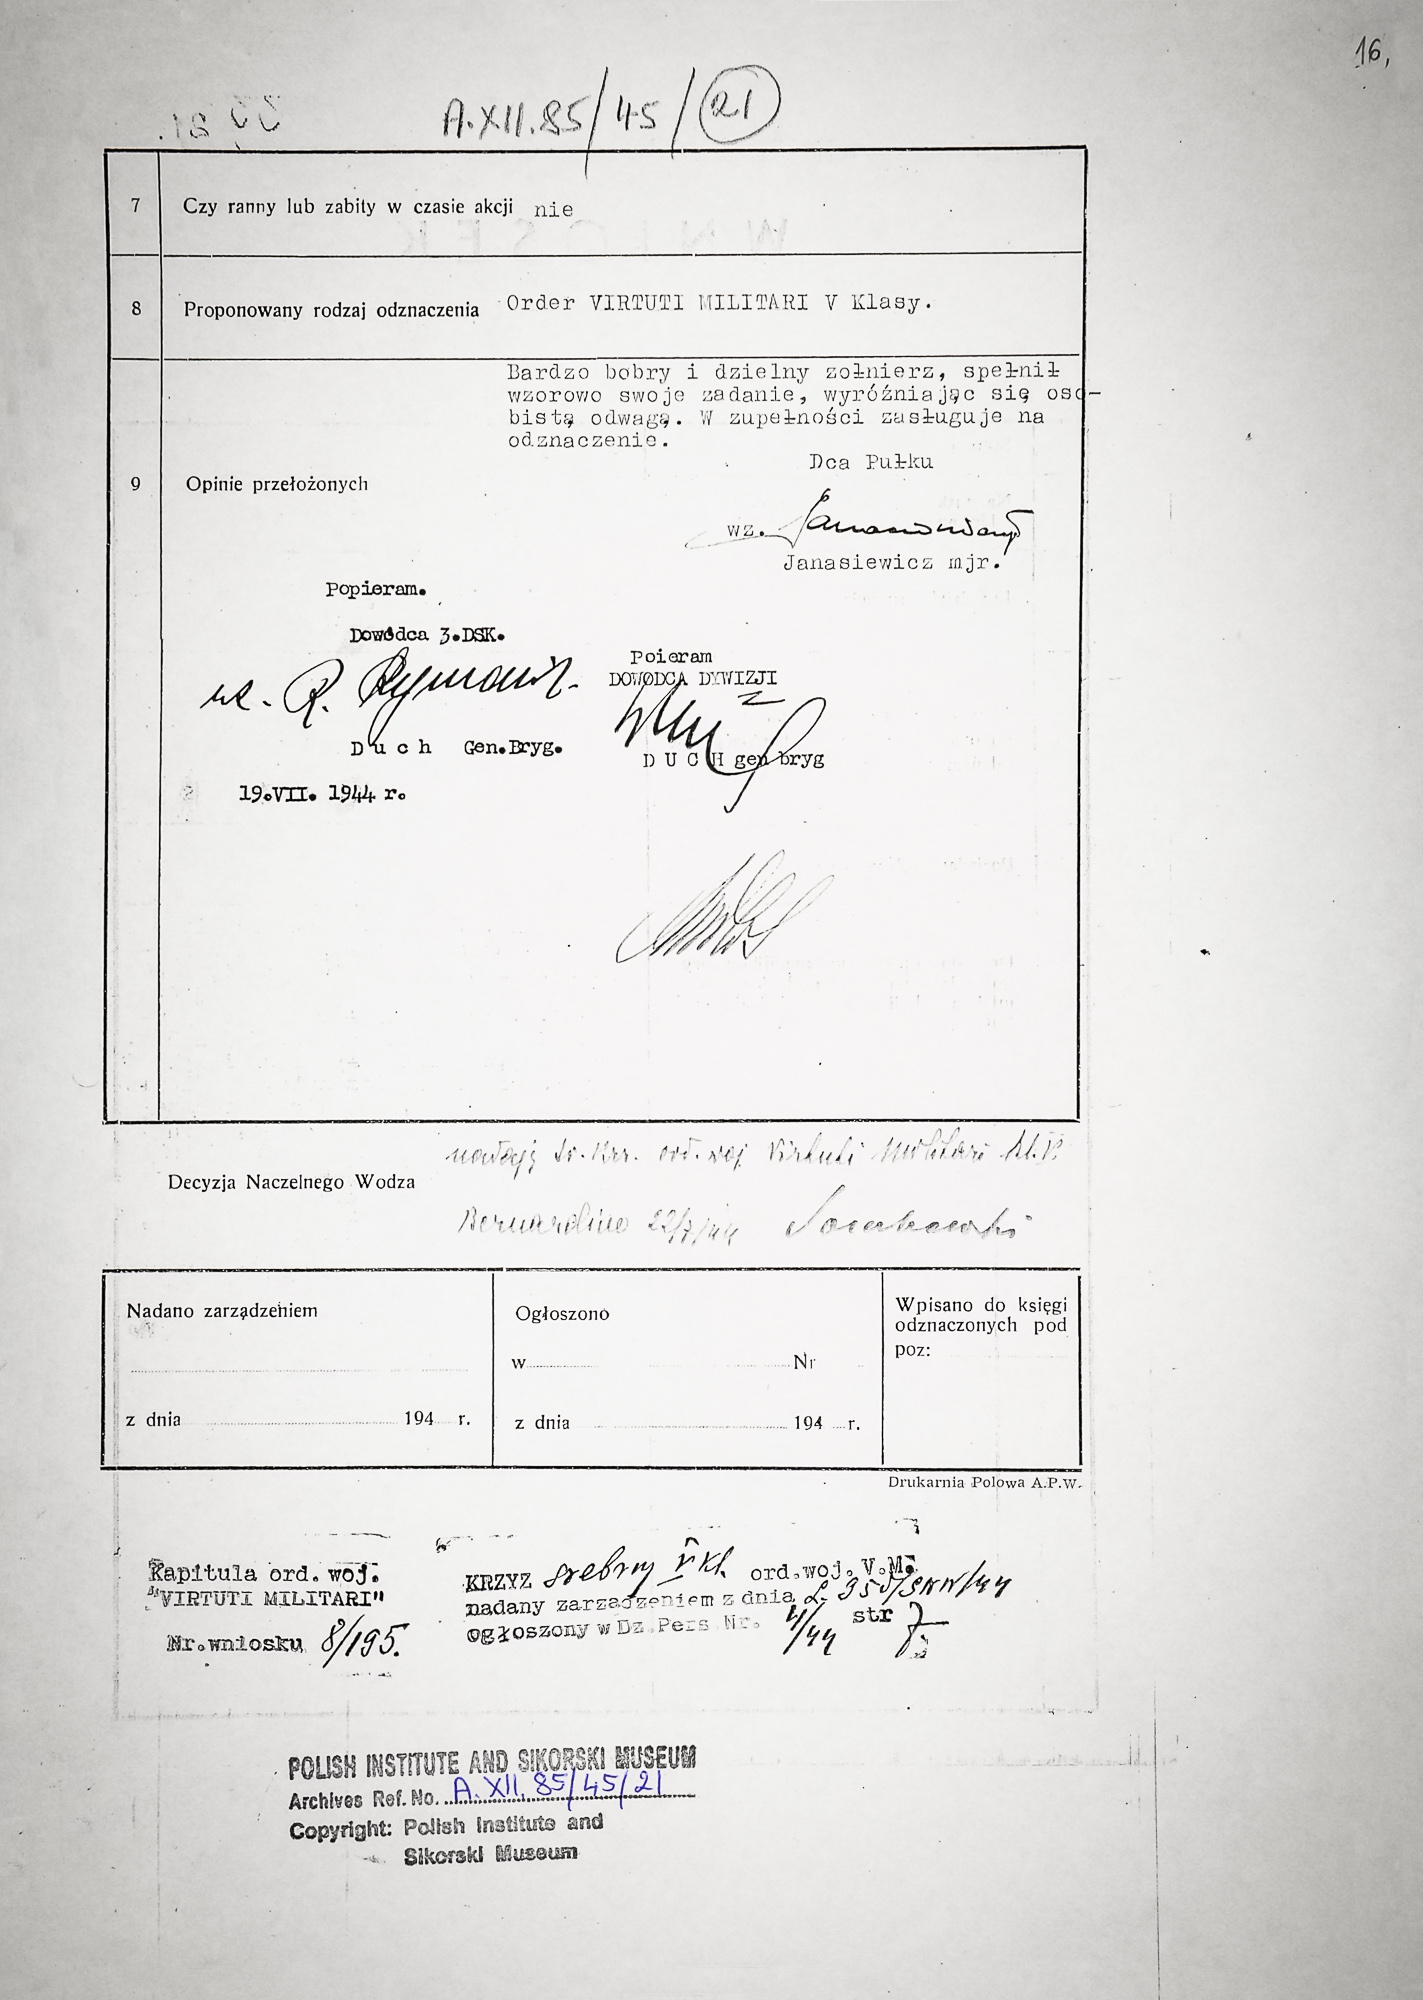 16,
A.XII.85/45/21
7 Czy ranny lub zabity w czasie akcji nie
8 Proponowany rodzaj odznaczenia Order VIRTUTI MILITARI V Klasy.
Bardzo bobry i dzielny zołnierz, spełnił
wzorowo swoje zadanie, wyróźniając się oso-
bistą odwagą. W zupełności zasługuje na
odznaczenie.
Dca Pułku
9 Opinie przełożonych
wz.
Janasiewicz mjr.
Popieram.
Dowódca 3.DSK.
wz. R. Rymaniak
Poieram
DOWÓDCA DYWIZJI
D u c h Gen.Bryg.
D U C H gen bryg
19.VII. 1944 r.
nadaję sr. krz. ord. woj Virtuti Militari kl. V
Decyzja Naczelnego Wodza
Bernardino 22/7/44 Sosnkowski
Nadano zarządzeniem
Ogłoszono
Wpisano do księgi
odznaczonych pod
poz:
w Nr
z dnia 194 r.
z dnia 194 r.
Drukarnia Polowa A.P.W.
Kapituła ord. woj.
"VIRTUTI MILITARI"
Nr. wniosku 8/195.
KRZYZ srebrny V kl. ord.woj. V.M.
nadany zarządzeniem z dnia L.
ogłoszony w Dz. Pers Nr. 4/44 str 7
POLISH INSTITUTE AND SIKORSKI MUSEUM
Archives Ref. No. A.XII.85/45/21
Copyright: Polish Institute and
Sikorski Museum